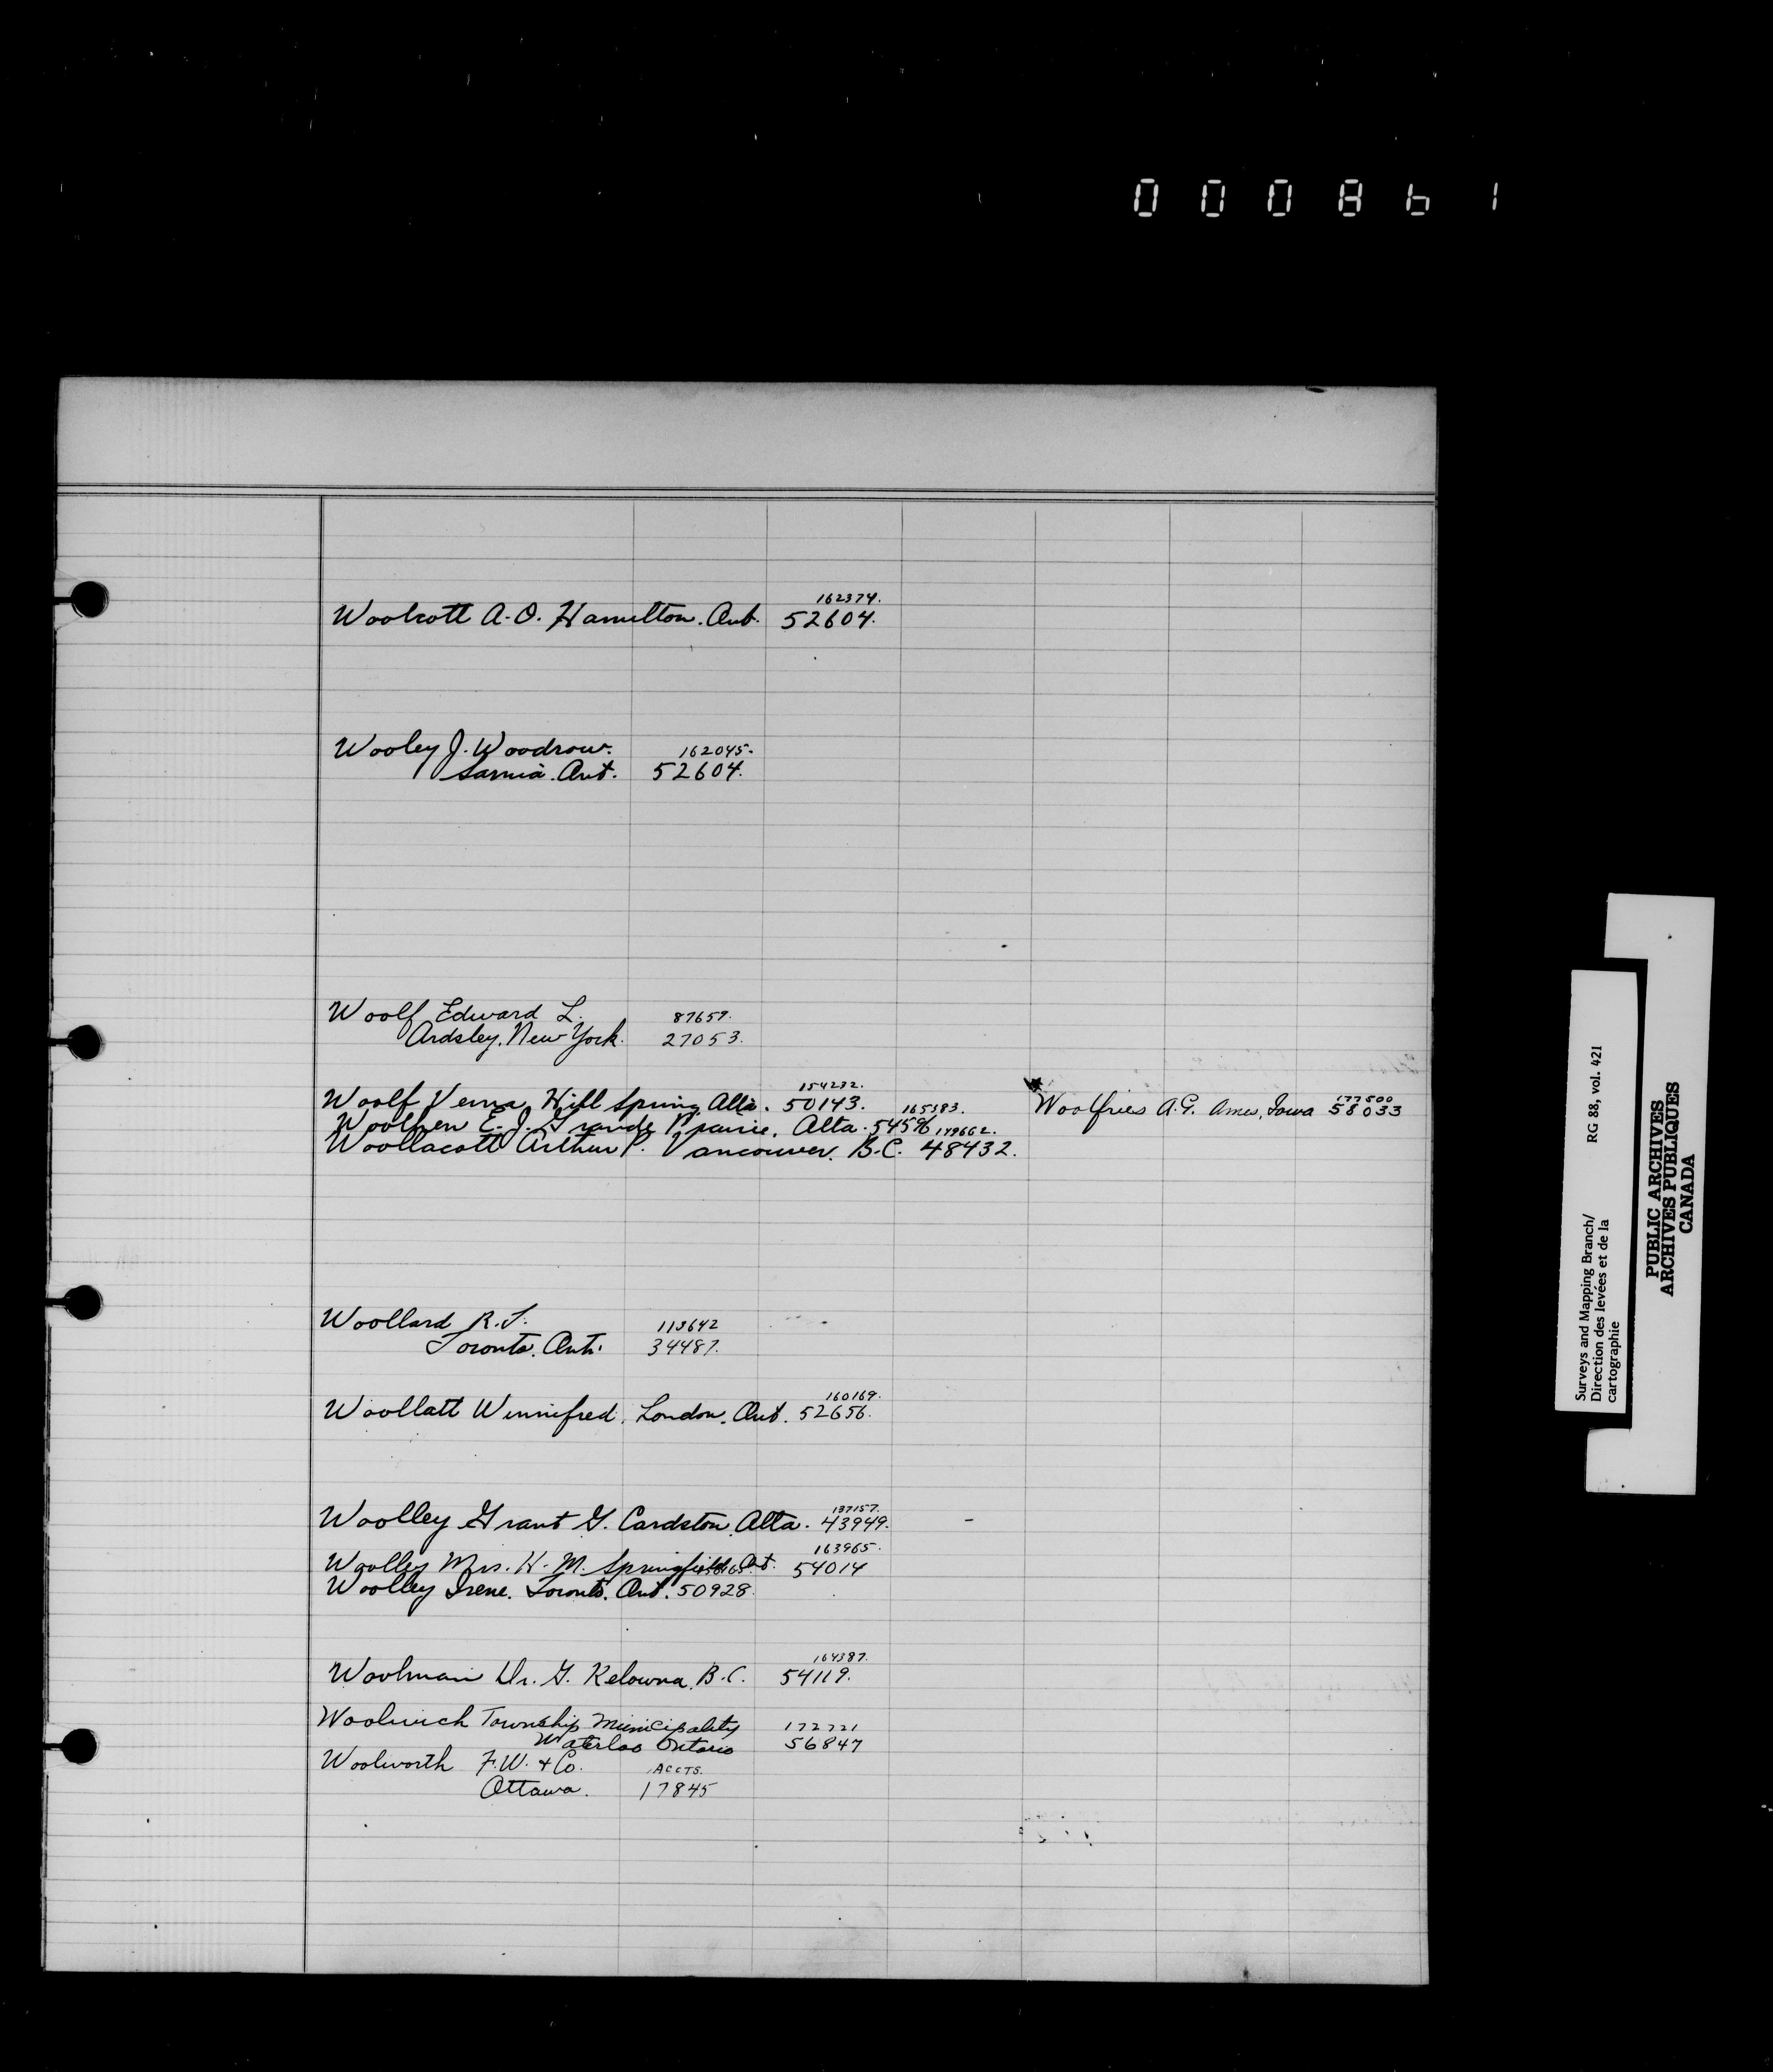 000861
162374.
Woolcott A.O. Hamilton. Ont. 52604.
Wooley J. Woodrow. 162045.
Sarnia. Ont. 52604.
Woolf Edward L. 87659.
Ardsley, New York. 27053.
154232.
Woolf Verna, Hill Spring, Alta. 50143. 165383.
Woolfries A.G. Ames, Iowa 177500 58033
E. J. Grande Prairie, Alta. 149662.
Woollacott Arthur P. Vancouver. B.C. 48432.
Woollard R.T. 113642
Toronto. Ont. 34487.
160169.
Woollatt Winnifred. London. Ont. 52656.
137157.
Woolley Grant G. Cardston. Alta. 43949.
163965.
Woolley Mrs. H. M. Springfield Ont. 54014
Woolley Irene. Toronto. Ont. 50928.
164387.
Woolman Dr. G. Kelowna. B.C. 54119.
Woolwich Township Municipality 172721
Waterloo Ontario 56847
Woolworth F.W. & Co. ACCTS.
Ottawa. 17845
Surveys and Mapping Branch/ RG 88, vol. 421
Direction des levées et de la
cartographie
PUBLIC ARCHIVES
ARCHIVES PUBLIQUES
CANADA